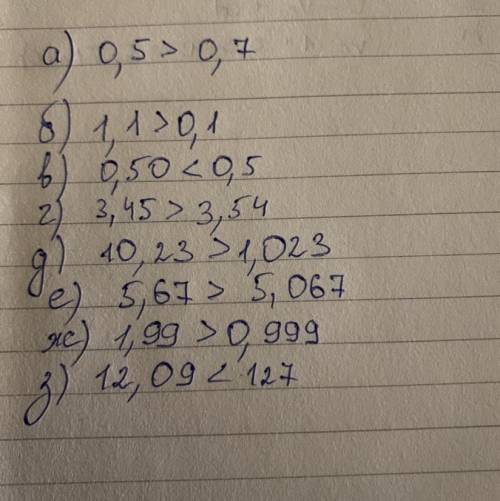 а) 0,5 > 0,7
б) 1,1 > 0,1
в) 0,50 < 0,5
г) 3,45 > 3,54
д) 10,23 > 1,023
е) 5,67 > 5,067
ж) 1,99 > 0,999
з) 12,09 < 127